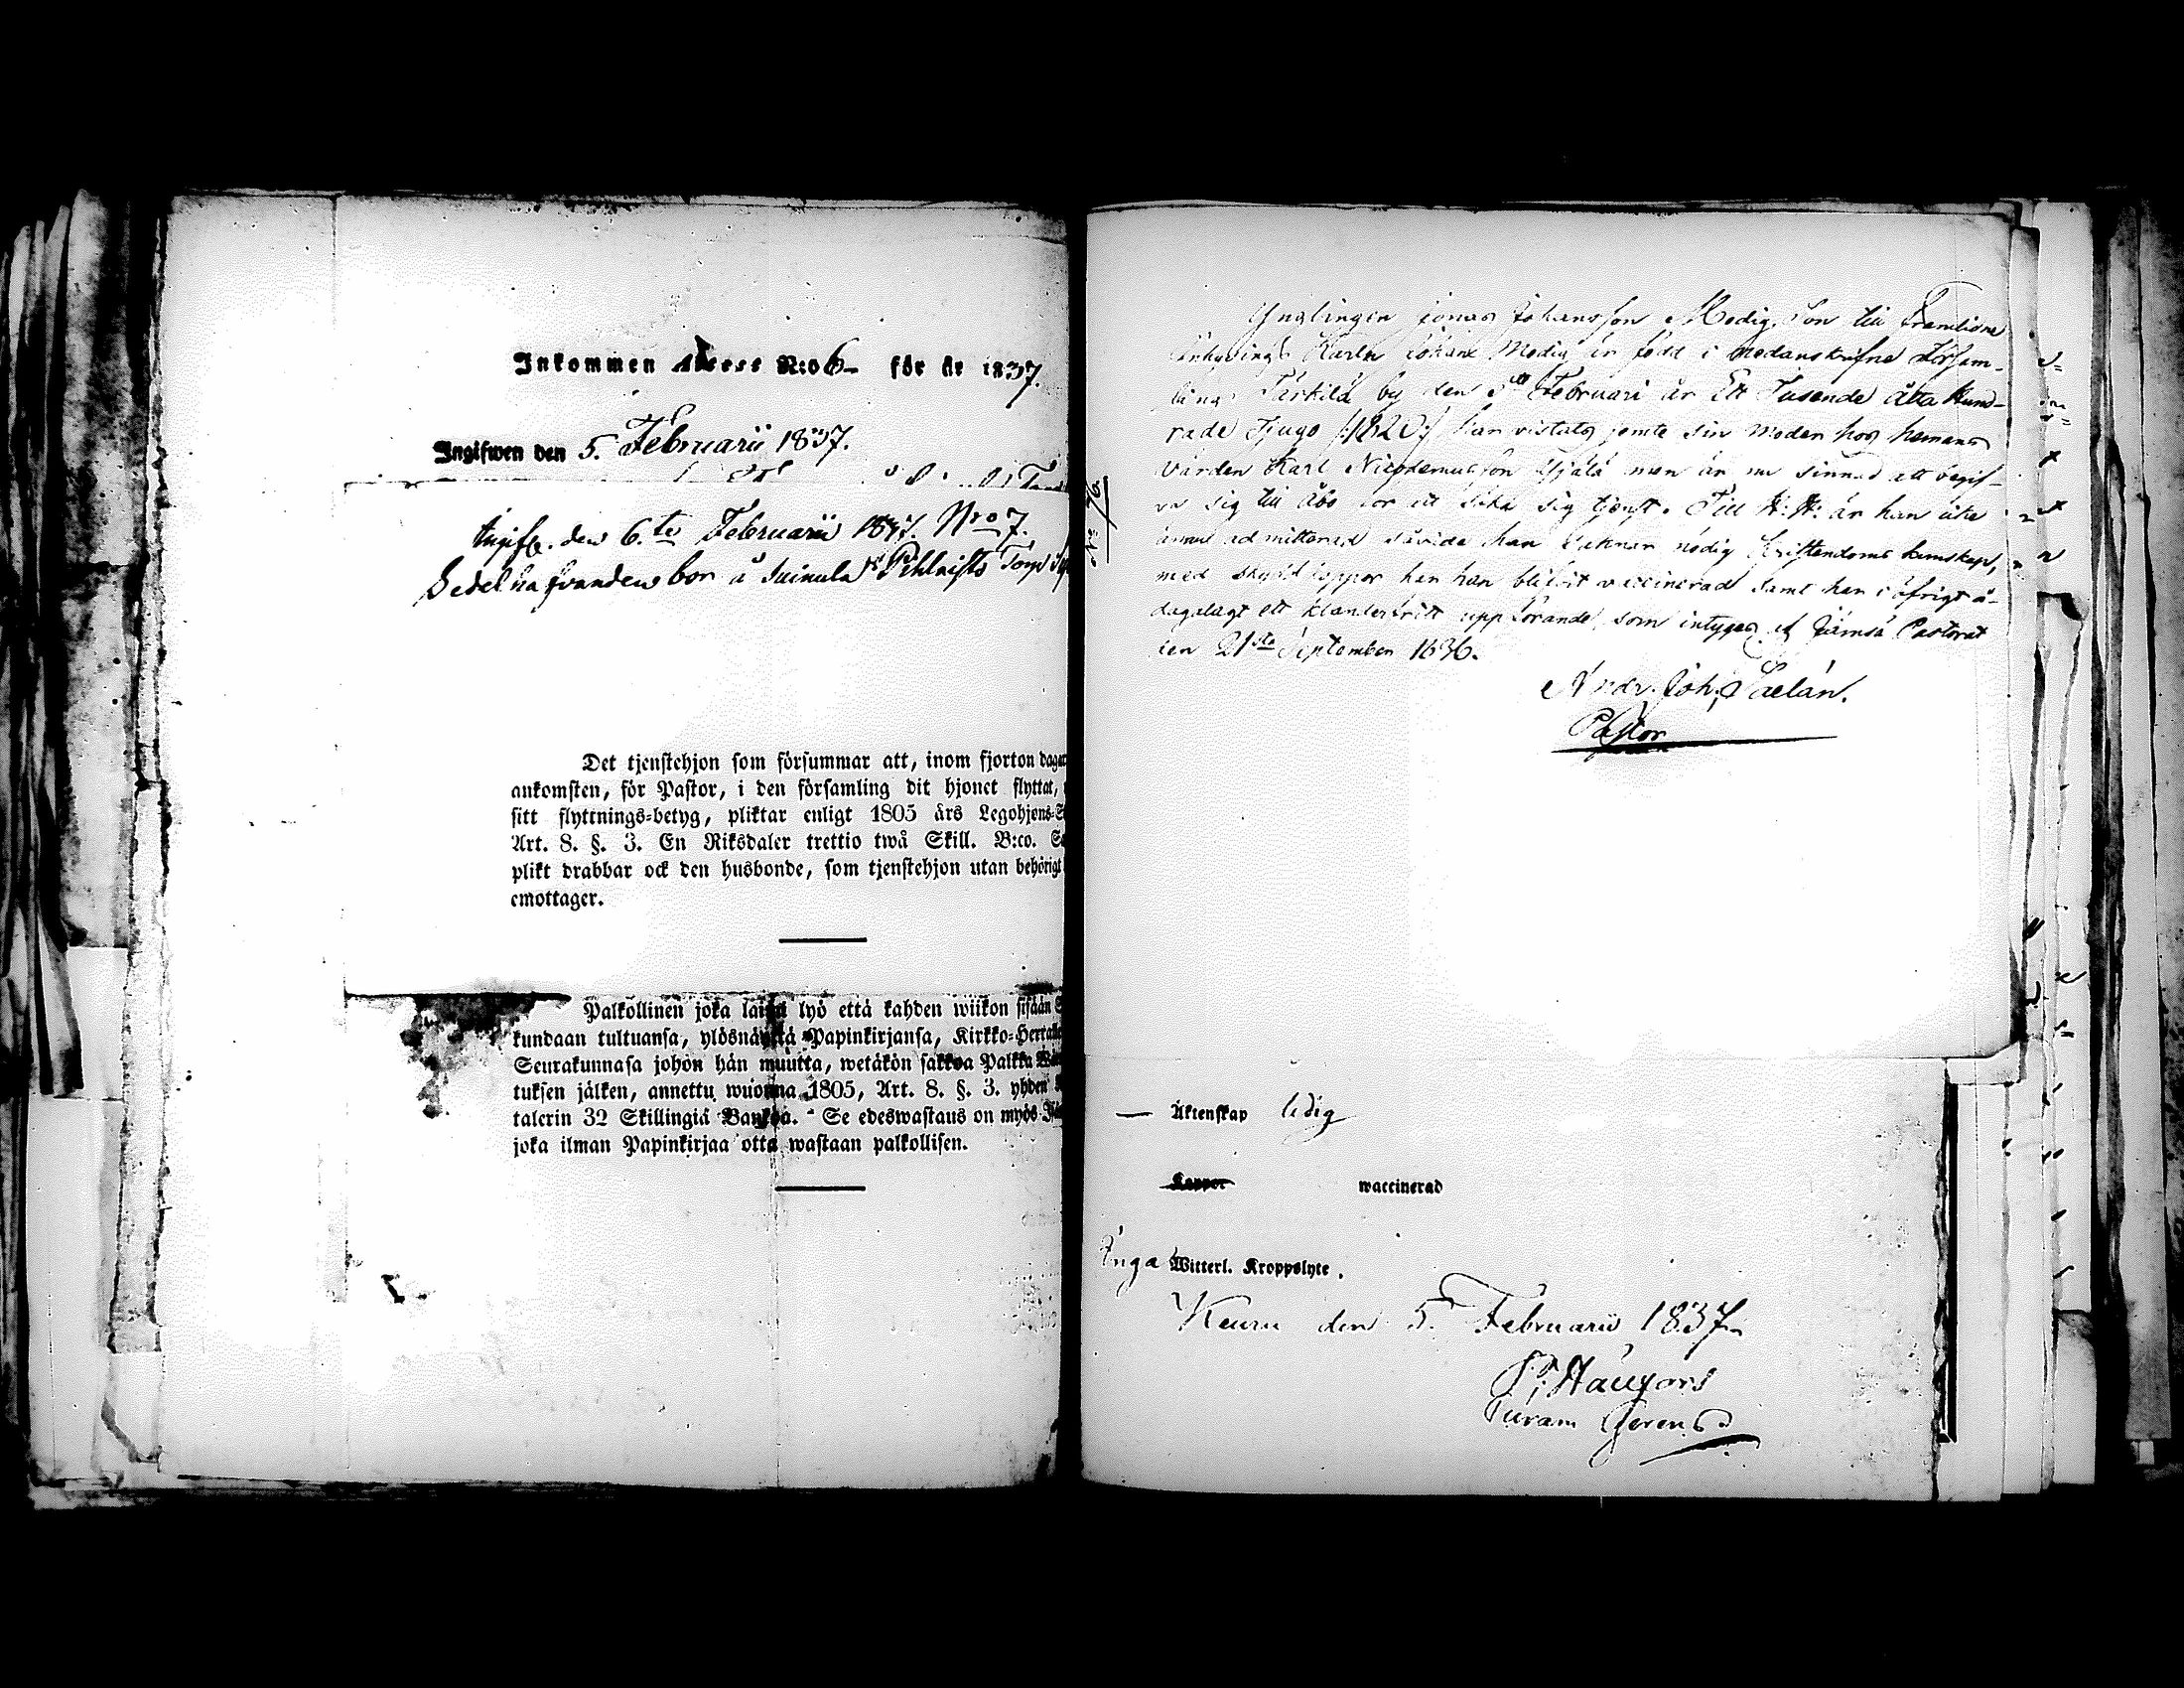 Inkommen N:o 6 för år 1837.
Ingifwen den 5. Februarii 1837.
Ingifv. den 6.te Februarii 1837. Nro 7.
Sedelhafvanden bor å Torp
Det tjenstehjon som försummar att, inom fjorton dagar
ankomsten, för Pastor, i den församling dit hjonet flyttat,
sitt flyttnings-betyg, pliktar enligt 1805 års Legohjons-
Art. 8. §. 3. En Riksdaler trettio twå Skill. B:co.
plikt drabbar ock den husbonde, som tjenstehjon utan behörigt
emottager.
Palkollinen joka laimin lyö että kahden wiikon sisään
kundaan tultuansa, ylösnäyttä Papinkirjansa, Kirkko-Herralle
Seurakunnasa johon hän muutta, wetäkön sakkoa Palkka
tuksen jälken, annettu wuonna 1805, Art. 8. §. 3. yhden
talerin 32 Skillingiä Bankoa. Se edeswastaus on myös
joka ilman Papinkirjaa otta wastaan palkollisen.
No: 76.
Ynglingen Jonas Johansson Modig, Son till framlidne
Karlen Johan Modig är född i nedanskrifne Försam-
lings Särkilä by den 5te Februari år Ett Tusende åtta hund-
rade Tjugo /:1820:/ har vistats jemte sin moder hos hemmans
värden Karl Nicodemusson men är nu sinnad att begif-
va sig till Åbo för att söka sig tjenst. Till H: N: är han icke
ännu admitterad såvida han saknar nödig Kristendoms kunskap,
med skyddskoppor har han blifvit vaccinerad samt har i öfrigt å-
dagalagt ett klanderfritt uppförande, som intygas af Jämsä Pastorat
den 21sta September 1836.
Andr. Joh. Saelan.
Pastor
— Äktenskap ledig
Koppor waccinerad
Inga Witterl. Kroppslyte.
Keuru den 5. Februarii 1837.
Curam Gerens